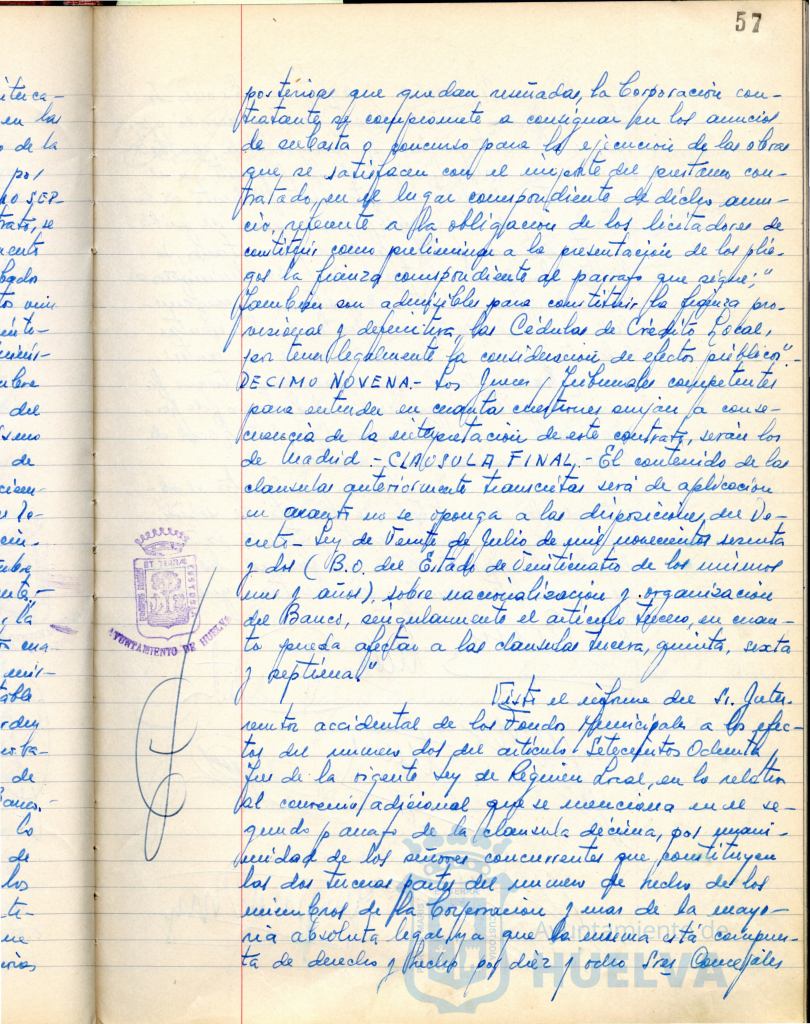 57
posteriores que quedan reseñadas, la Corporación con-
tratante se compromete a consignar en los anuncios
de subasta o concurso para la ejecución de las obras
que se satisfacen con el importe del prestamo con-
tratado, en el lugar correspondiente de dicho anun-
cio, referente a la obligación de los licitadores de
constituir como preliminar a la presentación de los plie-
gos la fianza correspondiente al parrafo que sigue; "
Tambien son admisibles para constituir la fianza pro-
visional y definitiva, las Cédulas de Crédito Local,
por tener legalmente la consideración de efectos públicos".-
DECIMO NOVENA.- Los Jueces y Tribunales competentes
para entender en cuantas cuestiones surjan a conse-
cuencia de la interpretación de este contrato, serán los
de Madrid.- CLAUSULA FINAL.- El contenido de las
clausulas anteriormente transcritas será de aplicación
en cuanto no se oponga a las disposiciones del De-
creto-Ley de Veinte de Julio de mil novecientos sesenta
y dos (B.O. del Estado de Veinticuatro de los mismos
mes y años), sobre nacionalización y organización
del Banco, singularmente el artículo tercero, en cuan-
to pueda afectar a las clausulas tercera, quinta, sexta
y septima."
Visto el informe del Sr. Inter-
ventor accidental de los Fondos Municipales a los efec-
tos del numero dos del artículo Setecientos Ochenta y
tres de la vigente Ley de Régimen Local, en lo relativo
al convenio adicional que se menciona en el se-
gundo parrafo de la clausula décima, por unani-
midad de los señores concurrentes que constituyen
las dos terceras partes del numero de hecho de los
miembros de la Corporación y mas de la mayo-
ria absoluta legal, ya que la misma está compues-
ta de derecho y hecho por diez y ocho Sres Concejales
AYUNTAMIENTO DE HUELVA
Ayuntamiento de
HUELVA